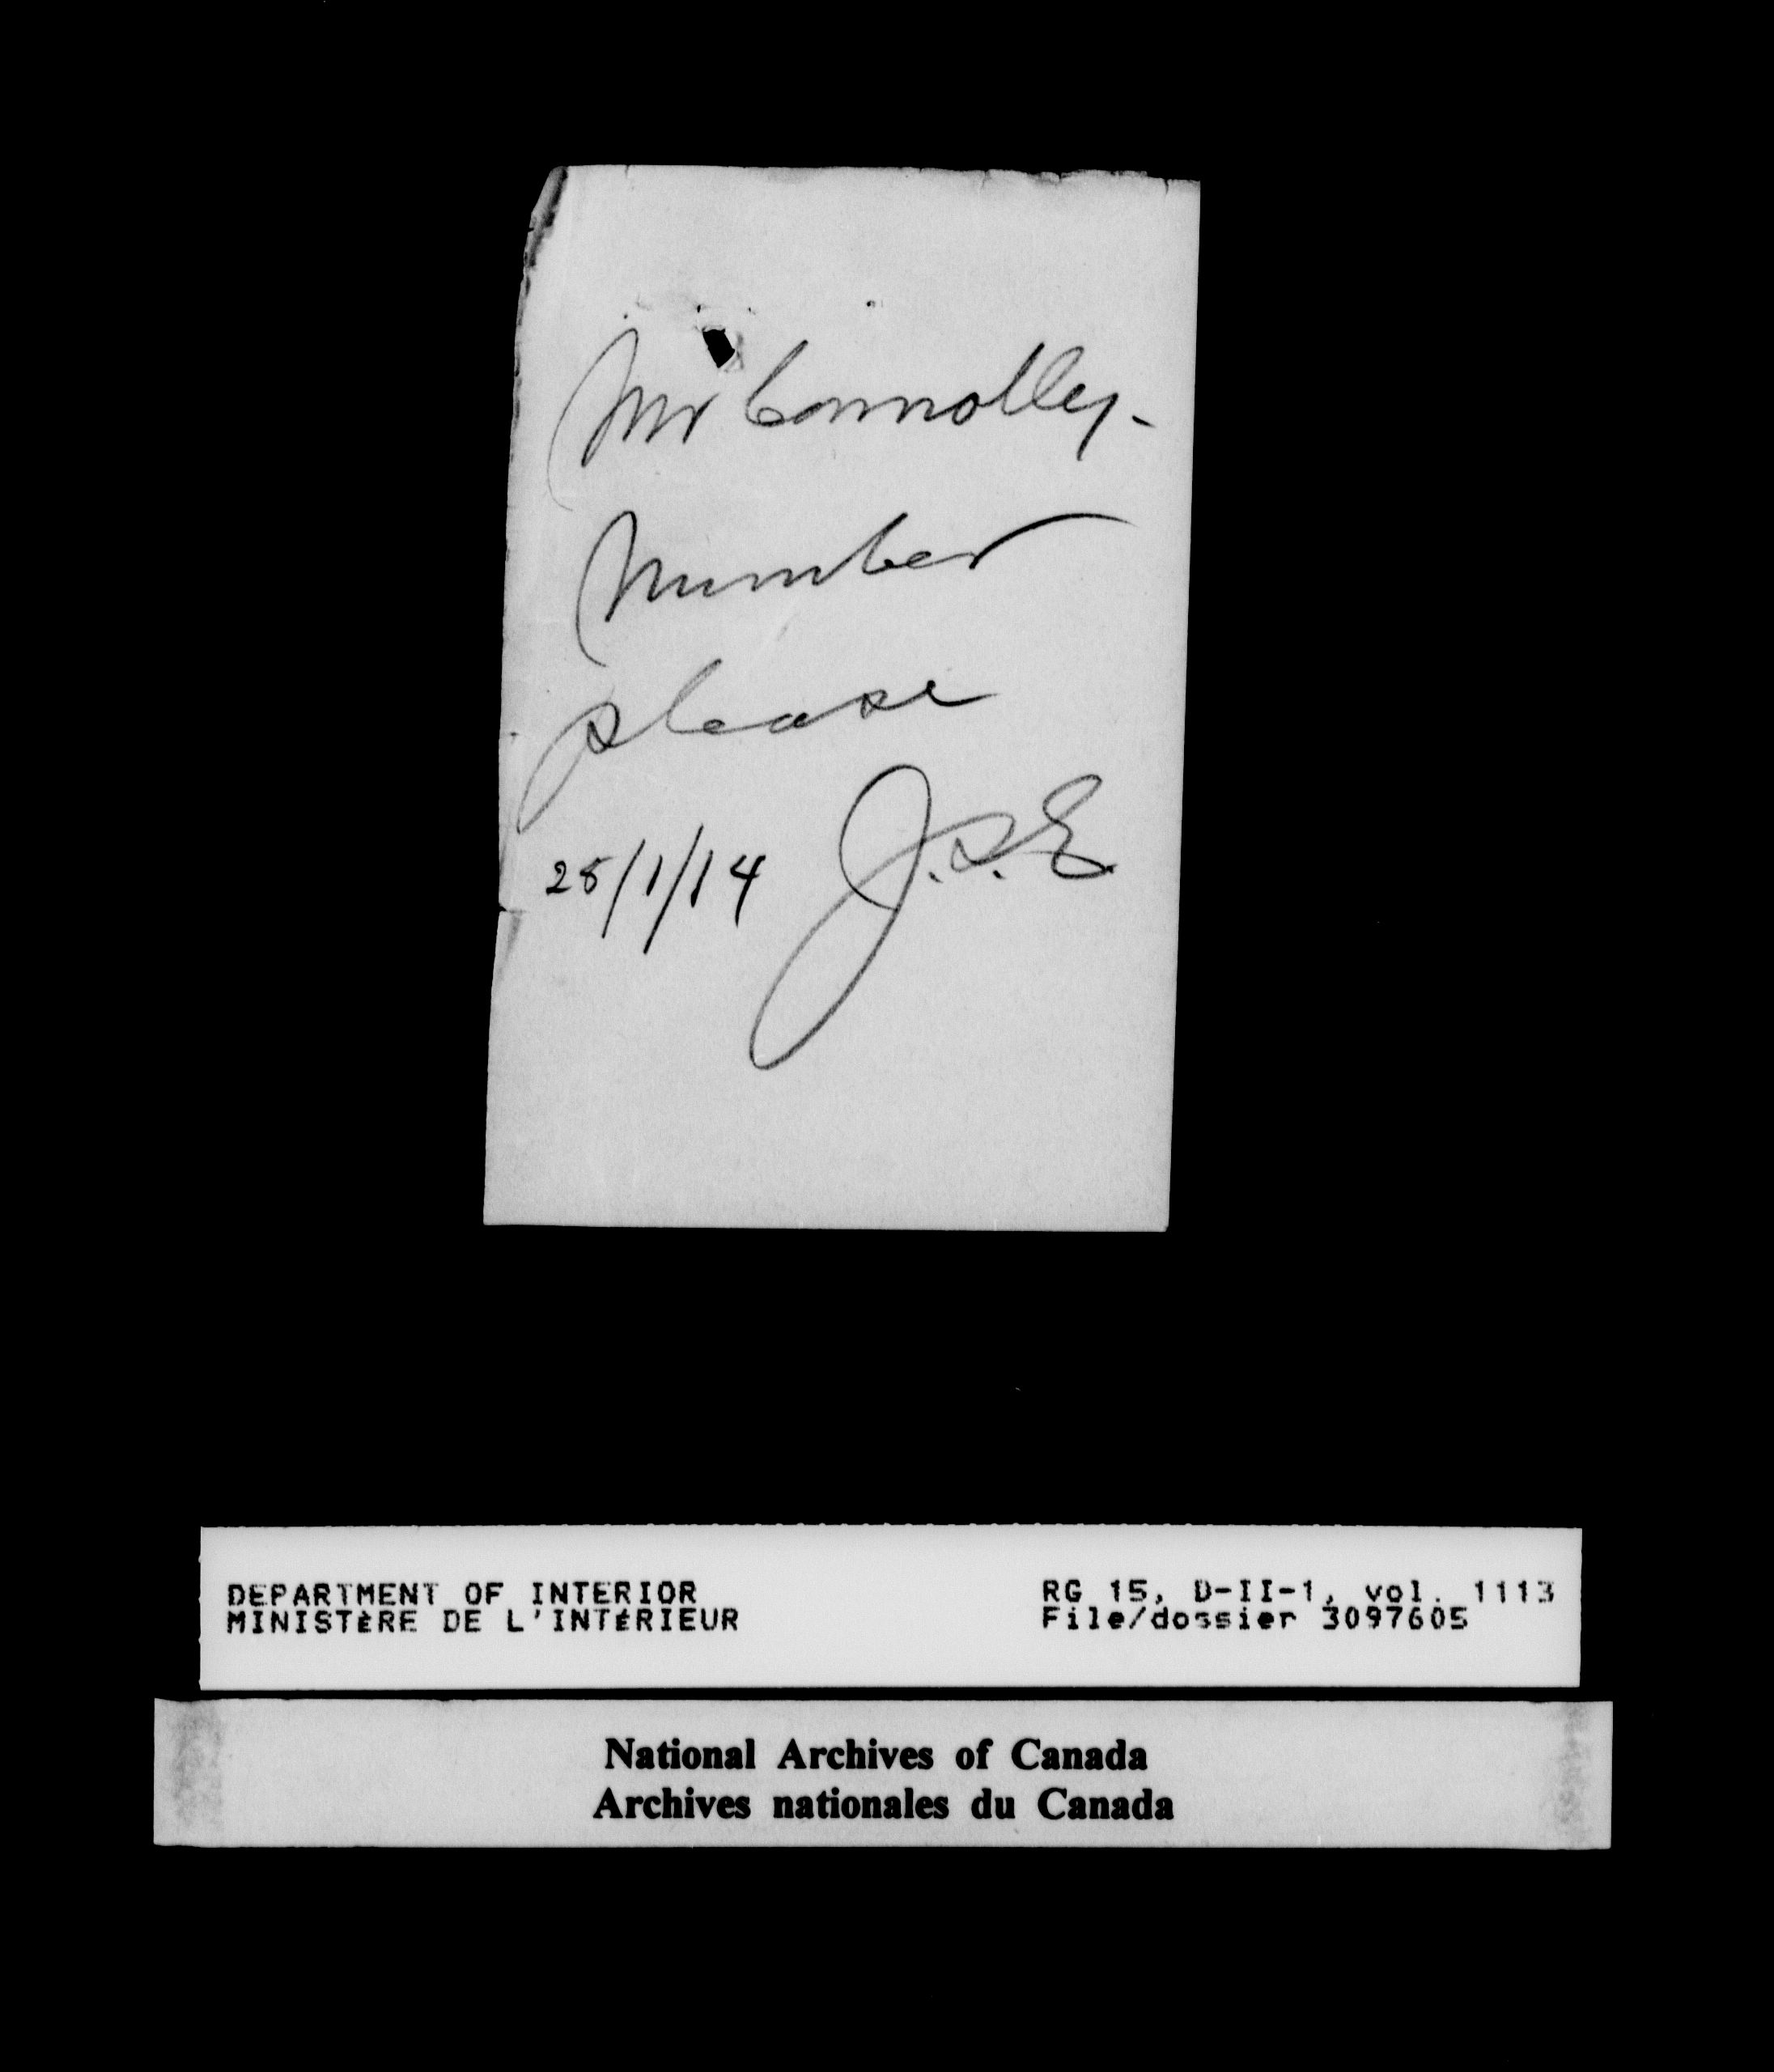 Mr Connolley.
Number
please
J.S.E.
/1/14
DEPARTMENT OF INTERIOR
MINISTÈRE DE L'INTÉRIEUR
RG 15, D-II-1, vol. 1113
File/dossier 3097605
National Archives of Canada
Archives nationales du Canada